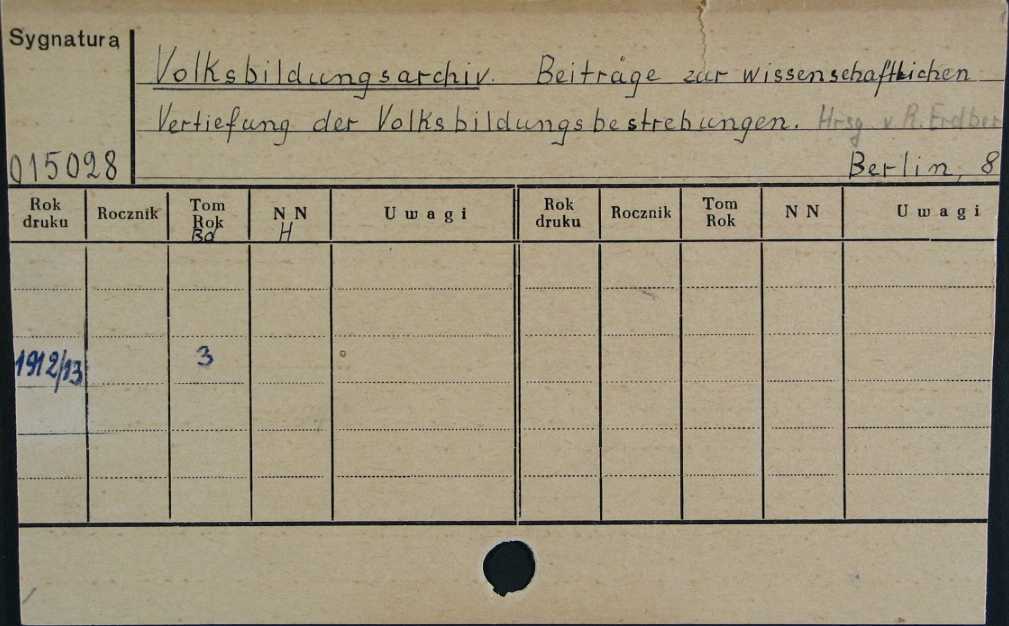 Sygnatura
Volksbildungsarchiv. Beiträge zur wissenschaftlichen
Vertiefung der Volksbildungsbestrebungen. Hrsg v R. Erdber
015028
Berlin, 8
Rok druku Rocznik Tom Rok Bd N N H Uwagi Rok druku Rocznik Tom Rok N N Uwagi
1912/13 3